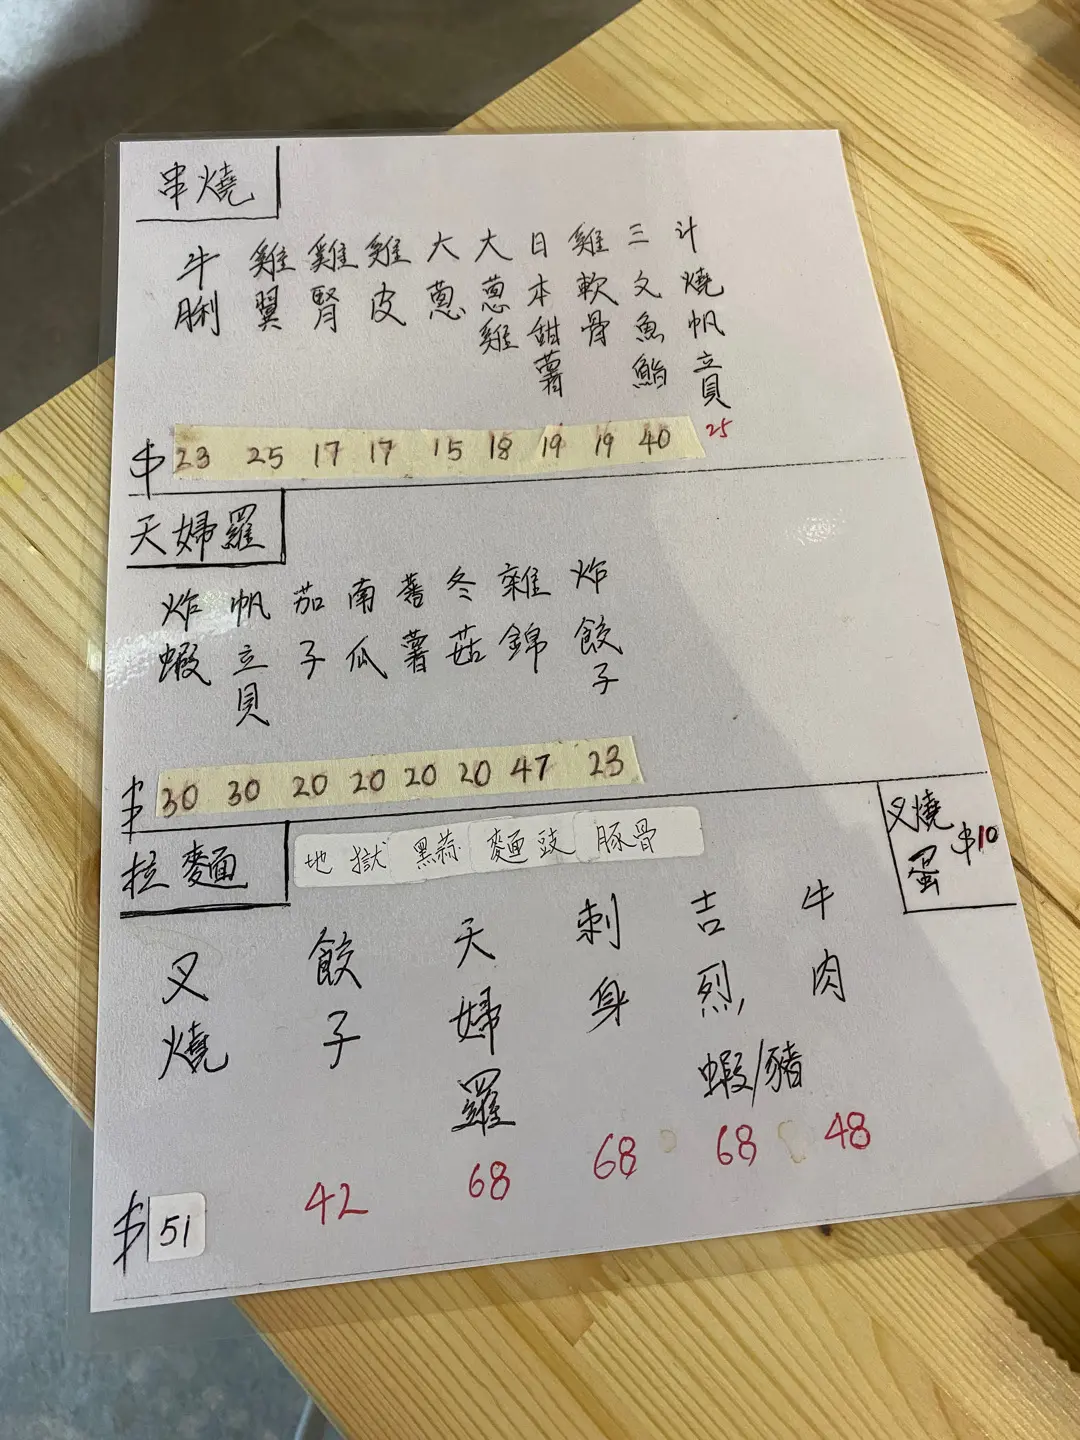 串燒
牛脷
雞翼
雞腎
雞皮
大蔥
大蔥雞
日本甜薯
雞軟骨
三文魚鮨
汁燒帆立貝
$ 23 25 17 17 15 18 19 19 40 25
天婦羅
炸蝦
帆立貝
茄子
南瓜
蕃薯
冬菇
雜錦
炸餃子
$ 30 30 20 20 20 20 47 23
拉麵
地獄 黑蒜 麵豉 豚骨
叉燒
蛋
$10
叉燒
餃子
天婦羅
刺身
吉烈蝦/豬
牛肉
$ 51 42 68 68 68 48